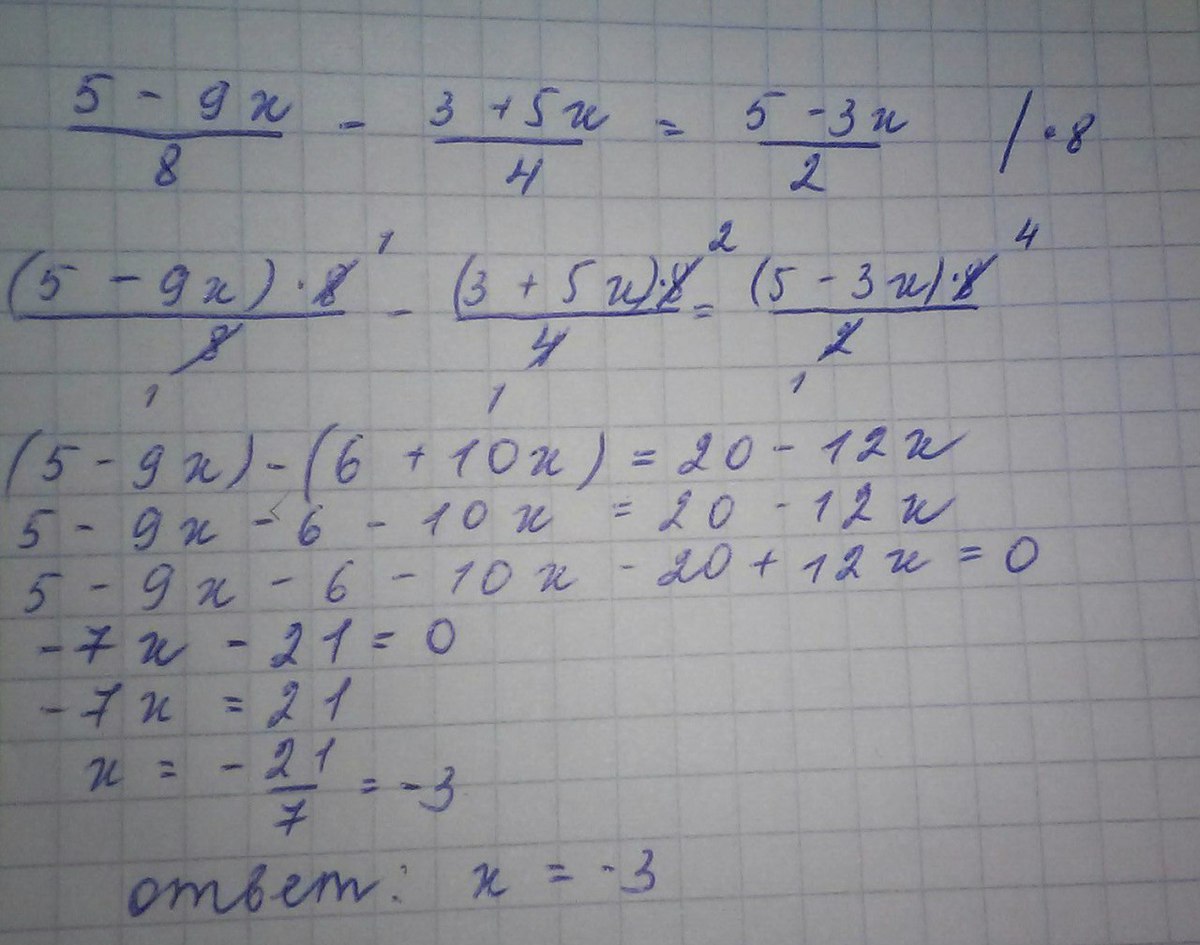 5 - 9x / 8 - 3 + 5x / 4 = 5 - 3x / 2 | · 8
(5 - 9x) · 8 ¹ / 8 ₁ - (3 + 5x) · 8 ² / 4 ₁ = (5 - 3x) · 8 ⁴ / 2 ₁
(5 - 9x) - (6 + 10x) = 20 - 12x
5 - 9x - 6 - 10x = 20 - 12x
5 - 9x - 6 - 10x - 20 + 12x = 0
-7x - 21 = 0
-7x = 21
x = - 21 / 7 = -3
ответ: x = -3